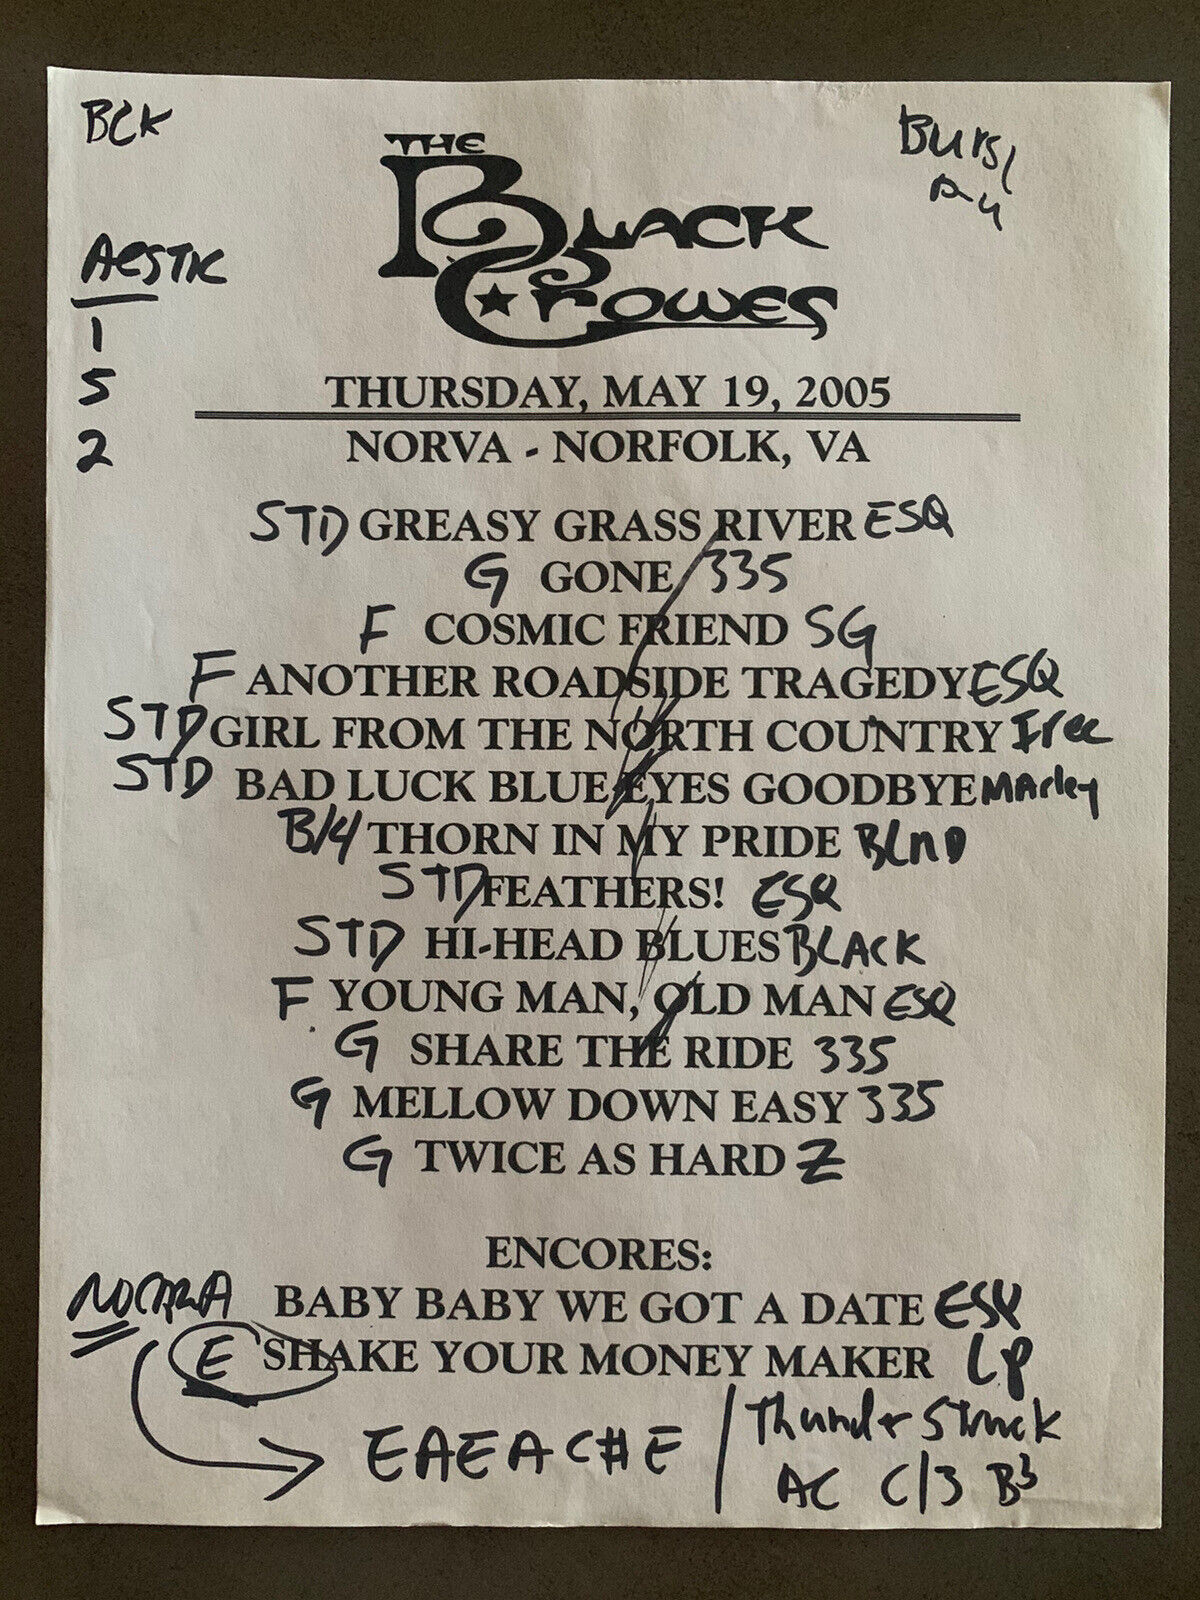 BCK
THE
BLACK
CROWES
1
5
2
THURSDAY, MAY 19, 2005
NORVA - NORFOLK, VA
STD GREASY GRASS RIVER ESQ
G GONE 335
F COSMIC FRIEND SG
F ANOTHER ROADSIDE TRAGEDY ESQ
STD GIRL FROM THE NORTH COUNTRY Free
STD BAD LUCK BLUE EYES GOODBYE MArley
B/4 THORN IN MY PRIDE BLND
STD FEATHERS! ESQ
STD HI-HEAD BLUES BLACK
F YOUNG MAN, OLD MAN ESQ
G SHARE THE RIDE 335
G MELLOW DOWN EASY 335
G TWICE AS HARD Z
ENCORES:
BABY BABY WE GOT A DATE ESQ
E SHAKE YOUR MONEY MAKER LP
EAEAC#E / Thunderstruck
AC C/3 B3